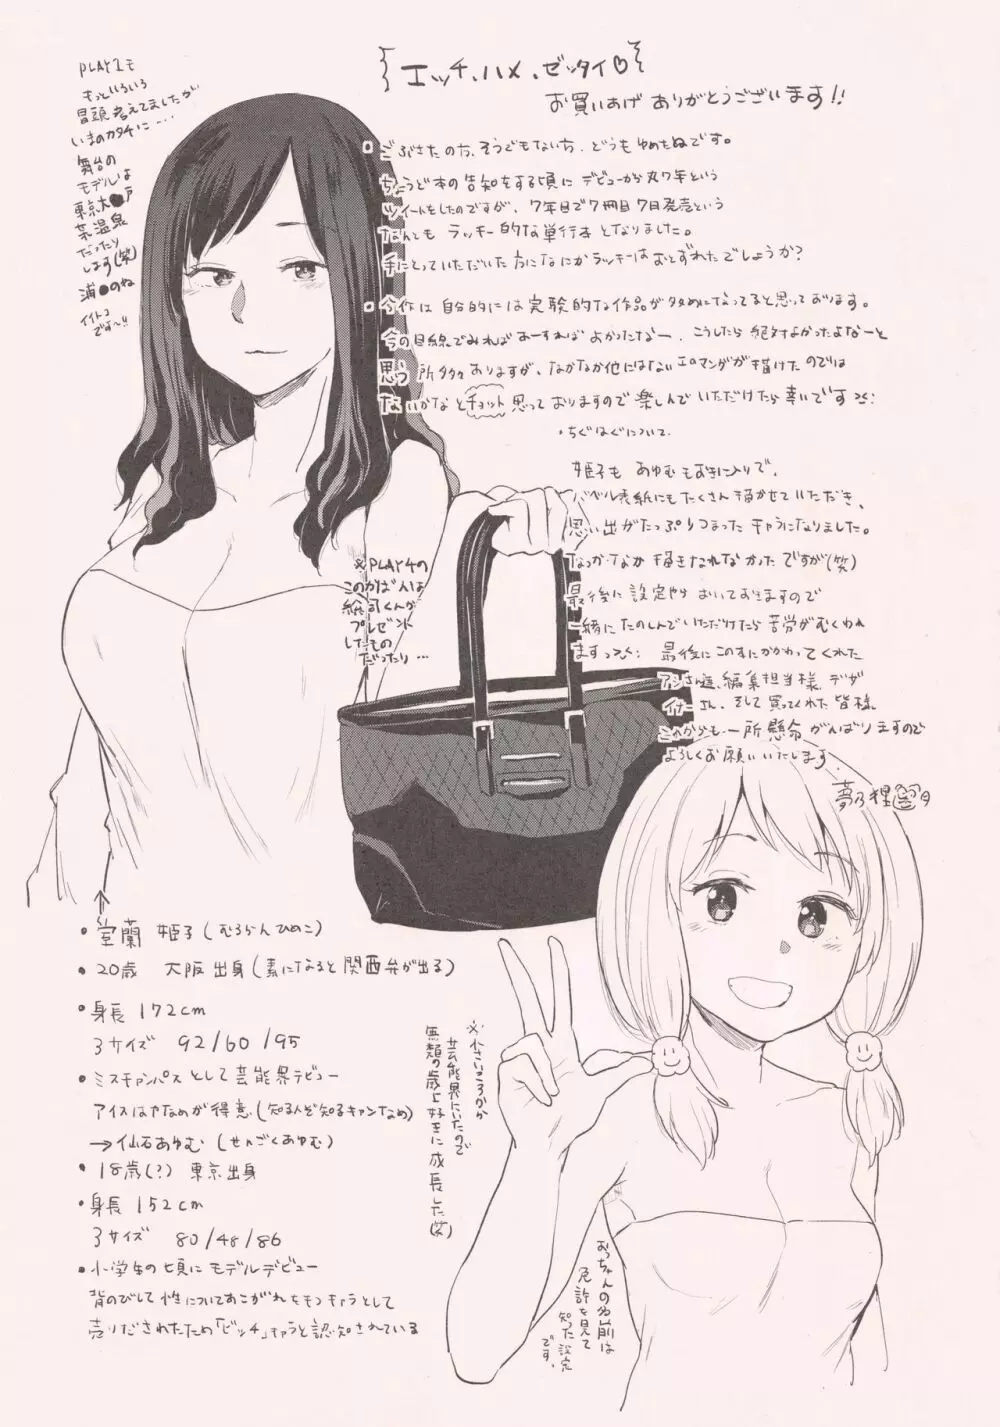 エッチ、ハメ、ゼッタイ♡
お買いあげ ありがとうございます!!
PLAY1も
もっといろいろ
冒頭考えてましたが
いまのカタチに…
舞台の
モデルは
東京大●戸
温泉
だったり
します(笑)
浦●のね
イイトコ
です〜!!
ごぶさたの方、そうでもない方、どうもゆめたぬです。
ちょうど本の告知をする頃にデビューから丸7年という
ツイートをしたのですが、7年目で7冊目7日発売という
なんとも ラッキー的な単行本となりました。
手にとっていただいた方になにかラッキーはおとずれたでしょうか?
今作は自分的には実験的な作品が多めになってると思っております。
今の目線でみればあーすればよかったなー、こうしたら絶対よかったよなーと
思う所多々ありますが、なかなか他にはないエロマンガが描けたのでは
ないかなとチョット思っておりますので楽しんでいただけたら幸いです
・ちぐはぐについて
姫子もあゆむもお気に入りで、
バベル表紙にもたくさん描かせていただき、
思い出がたっぷりつまったキャラになりました。
なかなか描きなれなかったですが(笑)
最後に設定やらおいておきますので
一緒にたのしんでいただけたら苦労がむくわれ
ます 最後にこの本にかかわってくれた
アシさん達、編集担当様、デザ
イナーさん、そして買ってくれた皆様、
これからも一所懸命がんばりますので
よろしくお願いいたします
夢乃狸
※PLAY4の
このかばんは
くんが
プレゼント
したもの
だったり…
・室蘭 姫子(むろらんひめこ)
・20歳 大阪出身(素になると関西弁が出る)
・身長 172cm
3サイズ 92/60/95
・ミスキャンパスとして芸能界デビュー
アイスはやなめが得意(知る人ぞ知るキャンなめ)
→仙石あゆむ(せんごくあゆむ)
・18歳(?) 東京出身
・身長 152cm
おっちゃんの名前は
免許を見て
知った設定
です。